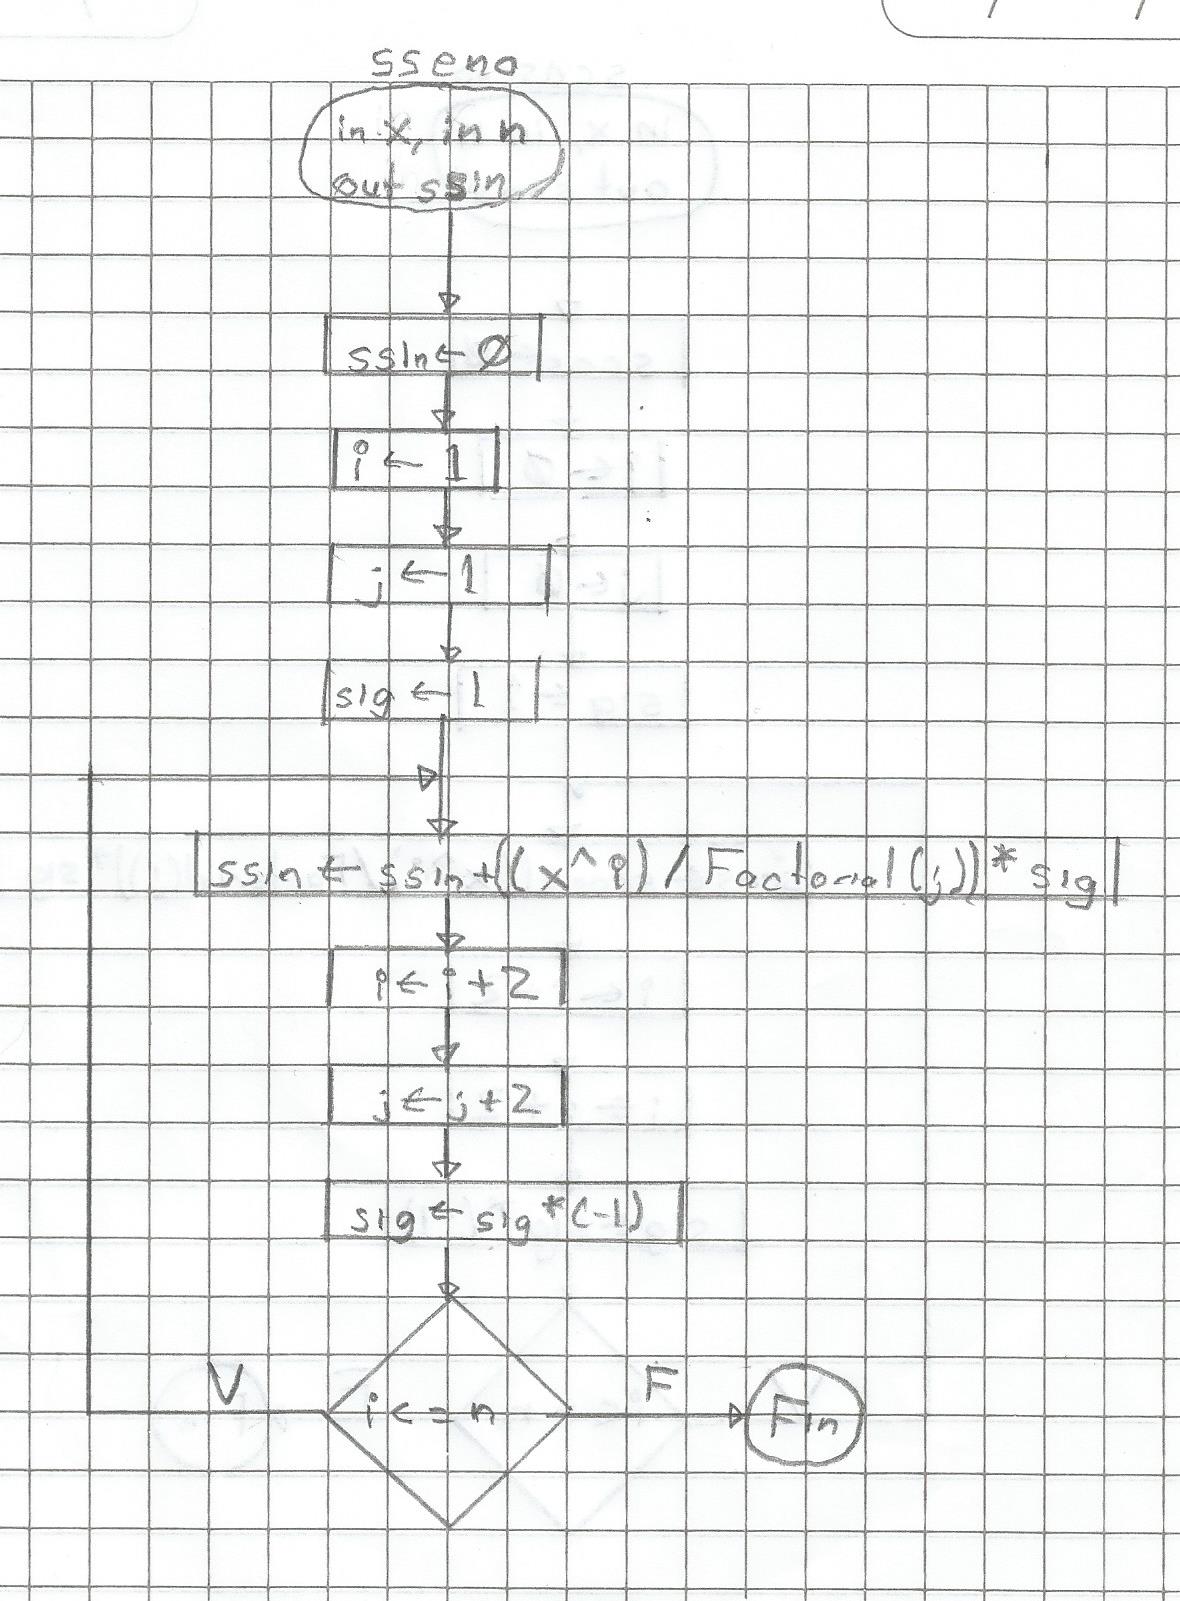 sseno
in x, in n
out ssin
ssin ← 0
i ← 1
j ← 1
sig ← 1
ssin ← ssin + ((x^i) / Factorial(j)) * sig
i ← i + 2
j ← j + 2
sig ← sig * (-1)
V
i <= n
F
Fin